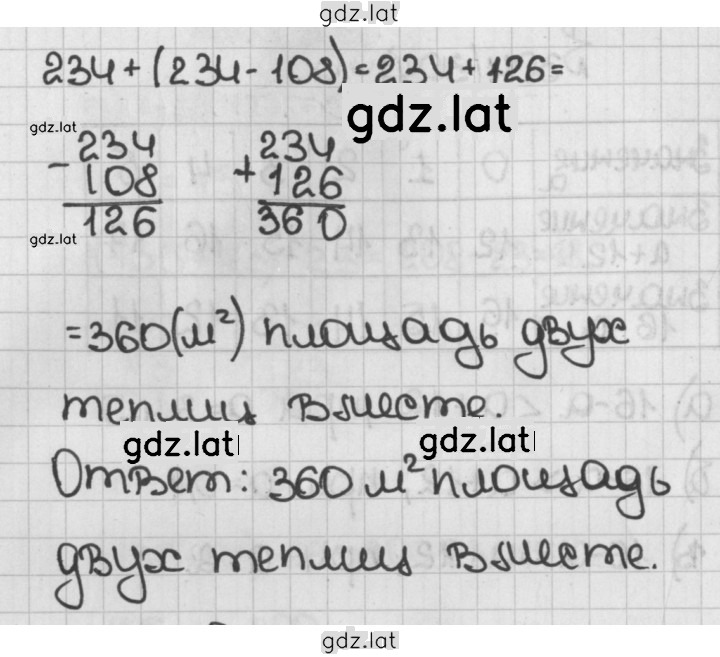 gdz.lat
234 + (234 - 108) = 234 + 126 =
gdz.lat
gdz.lat
- 234 + 234
108 126
126 360
gdz.lat
= 360 (м²) площадь двух
теплиц вместе.
gdz.lat gdz.lat
Ответ: 360 м² площадь
двух теплиц вместе.
gdz.lat